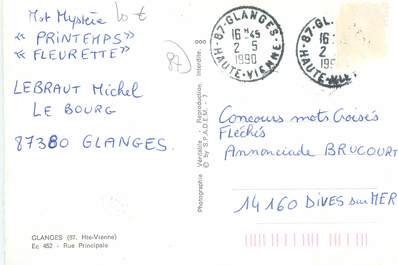 Mot Mystère
« PRINTEMPS »
« FLEURETTE »
LEBRAUT Michel
LE BOURG
87380 GLANGES.
GLANGES (87. Hte-Vienne)
Ec 452 - Rue Principale
87
Photographie Véritable - Reproduction Interdite.
© by S.P.A.D.E.M. 7
87-GLANGES-
16H45
2 5
1990
HAUTE-VIENNE
87-GL
16
2
HAUTE-VIE
Concours mots Croisés
Fléchés
Annonciade BRUCOURT
14160 DIVES sur MER